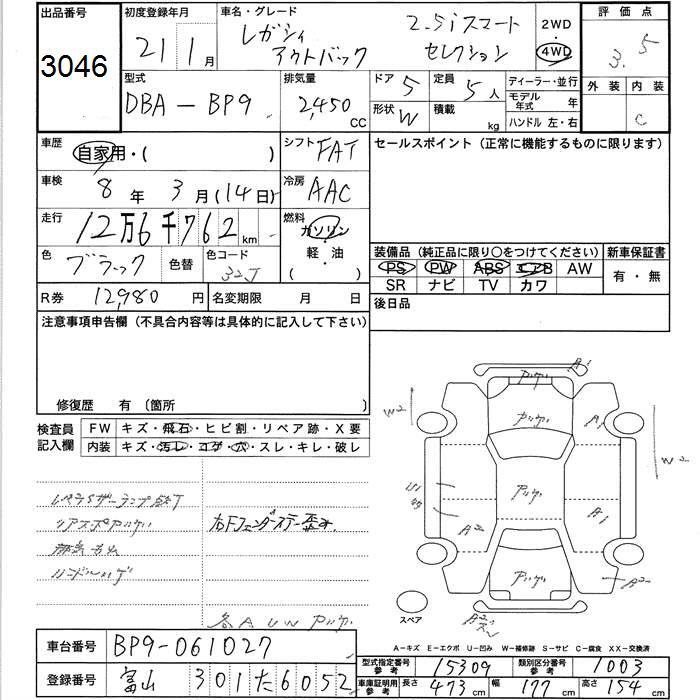 出品番号 3046
初度登録年月 21年1月
車名・グレード レガシィ アウトバック 2.5i スマート セレクション
2WD・4WD
評価点 3.5
外装 内装 C
型式 DBA-BP9
排気量 2,450 CC
ドア 5 定員 5人
形状 W 積載 kg
ディーラー・並行
モデル年式 年
ハンドル 左・右
車歴 自家用・( )
シフト FAT
セールスポイント (正常に機能するものに限ります)
車検 8年3月(14日)
冷房 AAC
走行 12万6千762km
燃料 ガソリン・軽油 ( )
色 ブラック 色替 色コード 32J
装備品 (純正品に限り○をつけてください) 新車保証書
PS PW ABS エアB AW 有・無
SR ナビ TV カワ
R券 12,980円 名変期限 月 日
後日品
注意事項申告欄 (不具合内容等は具体的に記入して下さい)
修復歴 有 (箇所 )
検査員記入欄
FW キズ・飛石・ヒビ割・リペア跡・X要
内装 キズ・汚レ・コゲ・穴・スレ・キレ・破レ
リアスポアツゲ
右Fフェンダーステー歪み
ハンドルハゲ
各AUWアツゲ
A1
アツゲ
W2
アツゲ
A1
W2
アツゲ
A2
A1
アツゲ
A2
スペア
A-キズ E-エクボ U-凹み W-補修跡 S-サビ C-腐食 XX-交換済
車台番号 BP9-061027
型式指定番号 参考 15309 類別区分番号 参考 1003
登録番号 富山 301 た 6052
車庫証明用 参考 長さ 473cm 幅 177cm 高さ 154cm